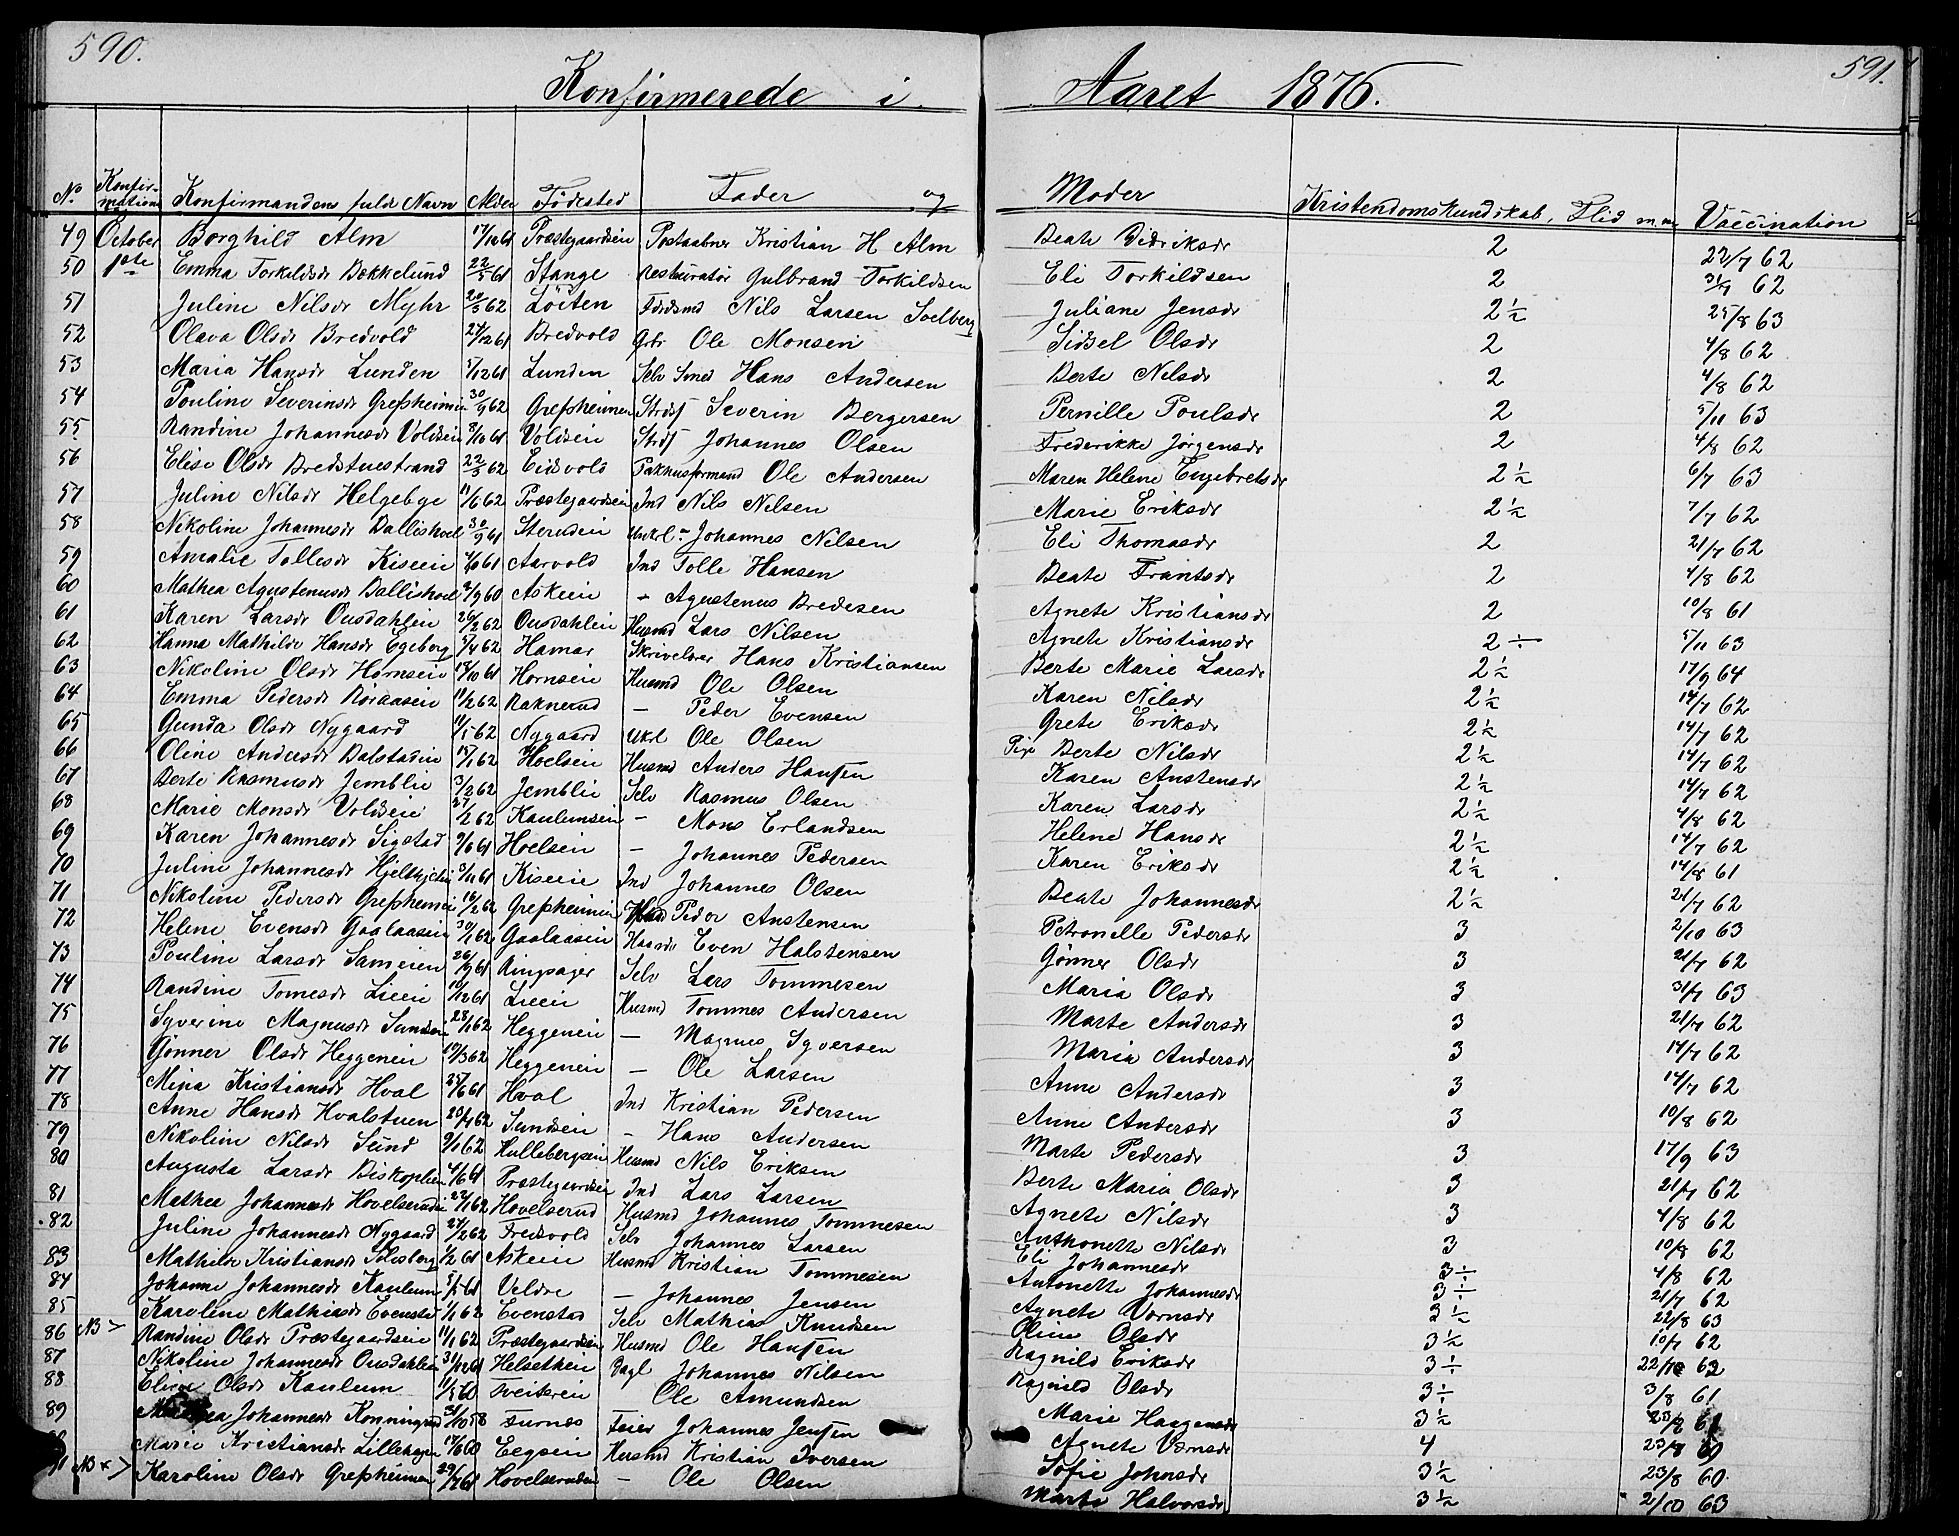 590.
591.
Konfirmerede i Aaret 1876.
No Konfirmations Konfirmandens fulde Navn Alder Fødested Fader og Moder Kristendomskundskab, Flid m.m. Vaccination
49 October Borghild Alm 17/12 61 Præstegaardseie Postaabner Kristian H Alm Beate Didriksdr 2 22/7 62
50 1ste Emma Torkildsdr Bækkelund 22/5 61 Stange Gulbrand Torkildsen Eli Torkildsen 2 31/7 62
51 Juline Nilsdr Myhr 20/3 62 Løiten Nils Larsen Soelberg Juliane Jensdr 2½ 25/8 63
52 Olava Olsdr Bredvold 27/12 61 Bredvold Gbr Ole Monsen Sidsel Olsdr 2 4/8 62
53 Maria Hansdr Lunden 5/12 61 Lunden Selv Smed Hans Andersen Berte Nilsdr 2 4/8 62
54 Pouline Severinsdr Grefsheimeie 30/9 62 Grefsheimeie Severin Bergersen Pernille Poulsdr 2 5/11 63
55 Randine Johannesdr Voldseie 3/10 61 Voldseie Johannes Olsen Frederikke Jørgensdr 2 4/8 62
56 Elise Olsdr Bredstuestrand 22/3 62 Eidsvold Pakhusformand Ole Andersen Maren Helene Engebretsdr 2½ 6/7 63
57 Juline Nilsdr Helgebye 11/6 62 Præstegaardseie Ind Nils Nilsen Marie Eriksdr 2½ 7/7 62
58 Nikoline Johannesdr Dallishoel 30/9 61 Sterudeie Johannes Nilsen Eli Thomasdr 2 21/7 62
59 Amalie Tollesdr Kiseeie 4/10 61 Aarvold Ind Tolle Hansen Beate Frantsdr 2 4/8 62
60 Mathea Agustenusdr Dallishoel 2/9 60 Askeie - Agustenus Bredesen Agnete Kristiansdr 2 10/8 61
61 Karen Larsdr Ousdahleie 26/2 62 Ousdahleie Husmd Lars Nilsen Agnete Kristiansdr 2 ÷ 5/11 63
62 Hanna Mathilde Hansdr Egeberg 5/4 62 Hamar Skrivelærer Hans Kristiansen Berte Marie Larsdr 2½ 17/9 64
63 Nikoline Olsdr Hornseie 18/10 61 Hornseie Husmd Ole Olsen Karen Nilsdr 2½ 14/7 62
64 Emma Pedersdr Røraaseie 11/2 62 Raknerud - Peder Evensen Grete Eriksdr 2½ 14/7 62
65 Gunda Olsdr Nygaard 11/5 62 Nygaard Ukrl Ole Olsen Pige Berte Nilsdr 2½ 14/7 62
66 Oline Andersdr Dalstadeie 15/1 62 Hoelseie Husmd Anders Hansen Karen Anstensdr 2½ 14/7 62
67 Berte Rasmusdr Jemblie 3/3 62 Jemblie Selv Rasmus Olsen Karen Larsdr 2½ 4/8 62
68 Marie Monsdr Voldseie 27/2 62 Kaulumseie - Mons Erlandsen Helene Hansdr 2½ 14/7 62
69 Karen Johannesdr Sigstad 9/6 61 Hoelseie - Johannes Pedersen Karen Eriksdr 2½ 14/8 61
70 Juline Johannesdr 3/11 61 Kiseeie Ind Johannes Olsen Beate Johannesdr 2½ 21/7 62
71 Nikoline Pedersdr Grefsheimeie 16/2 62 Grefsheimeie Peder Anstensen Petronelle Pedersdr 3 2/10 63
72 Helene Evensdr Gaalaaseie 30/1 62 Gaalaaseie Husmd Even Halstensen Gønner Olsdr 3 21/7 62
73 Pouline Larsdr Sameien 26/9 61 Ringsager Selv Lars Tommesen Maria Olsdr 3 31/7 63
74 Randine Tomesdr Lieeie 10/12 61 Lieeie Husmd Tommes Andersen Marte Andersdr 3 21/7 62
75 Syverine Magnusdr Sundseie 28/1 62 Heggeneie - Magnus Syversen Maria Andersdr 3 14/7 62
76 Gønner Olsdr Heggeneie 19/3 62 Heggeneie - Ole Larsen Anne Andersdr 3 14/7 62
77 Mina Kristiansdr Hval 25/6 61 Hval Ind Kristian Pedersen Anne Andersdr 3 10/8 62
78 Anne Hansdr Hvalstuen 23/4 62 Sundseie - Hans Andersen Marte Pedersdr 3 17/9 63
79 Nikoline Nilsdr Sund 9/1 62 Hullebergseie Husmd Nils Eriksen Berte Maria Olsdr 3 21/7 62
80 Augusta Larsdr Biskoplien 4/6 61 Præstegaardseie Ind Lars Larsen Agnete Nilsdr 3 4/8 62
81 Mathea Johannesdr Hovelserudeie 24/1 62 Hovelserud Husmd Johannes Tommesen Anthonette Nilsdr 3 10/8 62
82 Juline Johannesdr Nygaard 27/2 62 Fredvold Selv Johannes Larsen Eli Johannesdr 3 ÷ 4/8 62
83 Mathilde Kristiansdr Solsberg 1/2 61 Askeie Husmd Kristian Tommesen Antonette Johannesdr 3 ÷ 21/7 62
84 Johanne Johannesdr Kaulum 5/5 61 Veldre - Johannes Jensen Agnete Vornsdr 3½ 22/8 63
85 Karoline Mathiasdr Evenstad 1/1 62 Evenstad Selv Mathias Knudsen Oline Olsdr 3½ 10/7 62
86 NB > Randine Olsdr Præstegaardseie 11/1 62 Præstegaardseie Husmd Ole Hansen Ragnild Eriksdr 3 ÷ 22/10 62
87 Nikoline Johannesdr Ousdahleie 31/12 61 Helsetheie Dagl Johannes Nilsen Ragnild Olsdr 3 ÷ 3/8 61
88 Eline Olsdr Kaulum 11/5 60 Tveitereie Ole Amundsen Marie Haagensdr 3½ 23/8 61
89 Johannesdr Konningrud 31/10 58 Furnæs Feier Johannes Jensen Agnete Vornsdr 4 23/8 60
Marie Kristiansdr Lillehagen 17/6 60 Eegseie Husmd Kristian Iversen Sofie Johnsdr 3½ 23/8 60.
91 NB × > Karoline Olsdr Grefsheimeie 29/7 61 Hovelserudeie - Ole Olsen Marte Halvorsdr 3½ 2/10 63